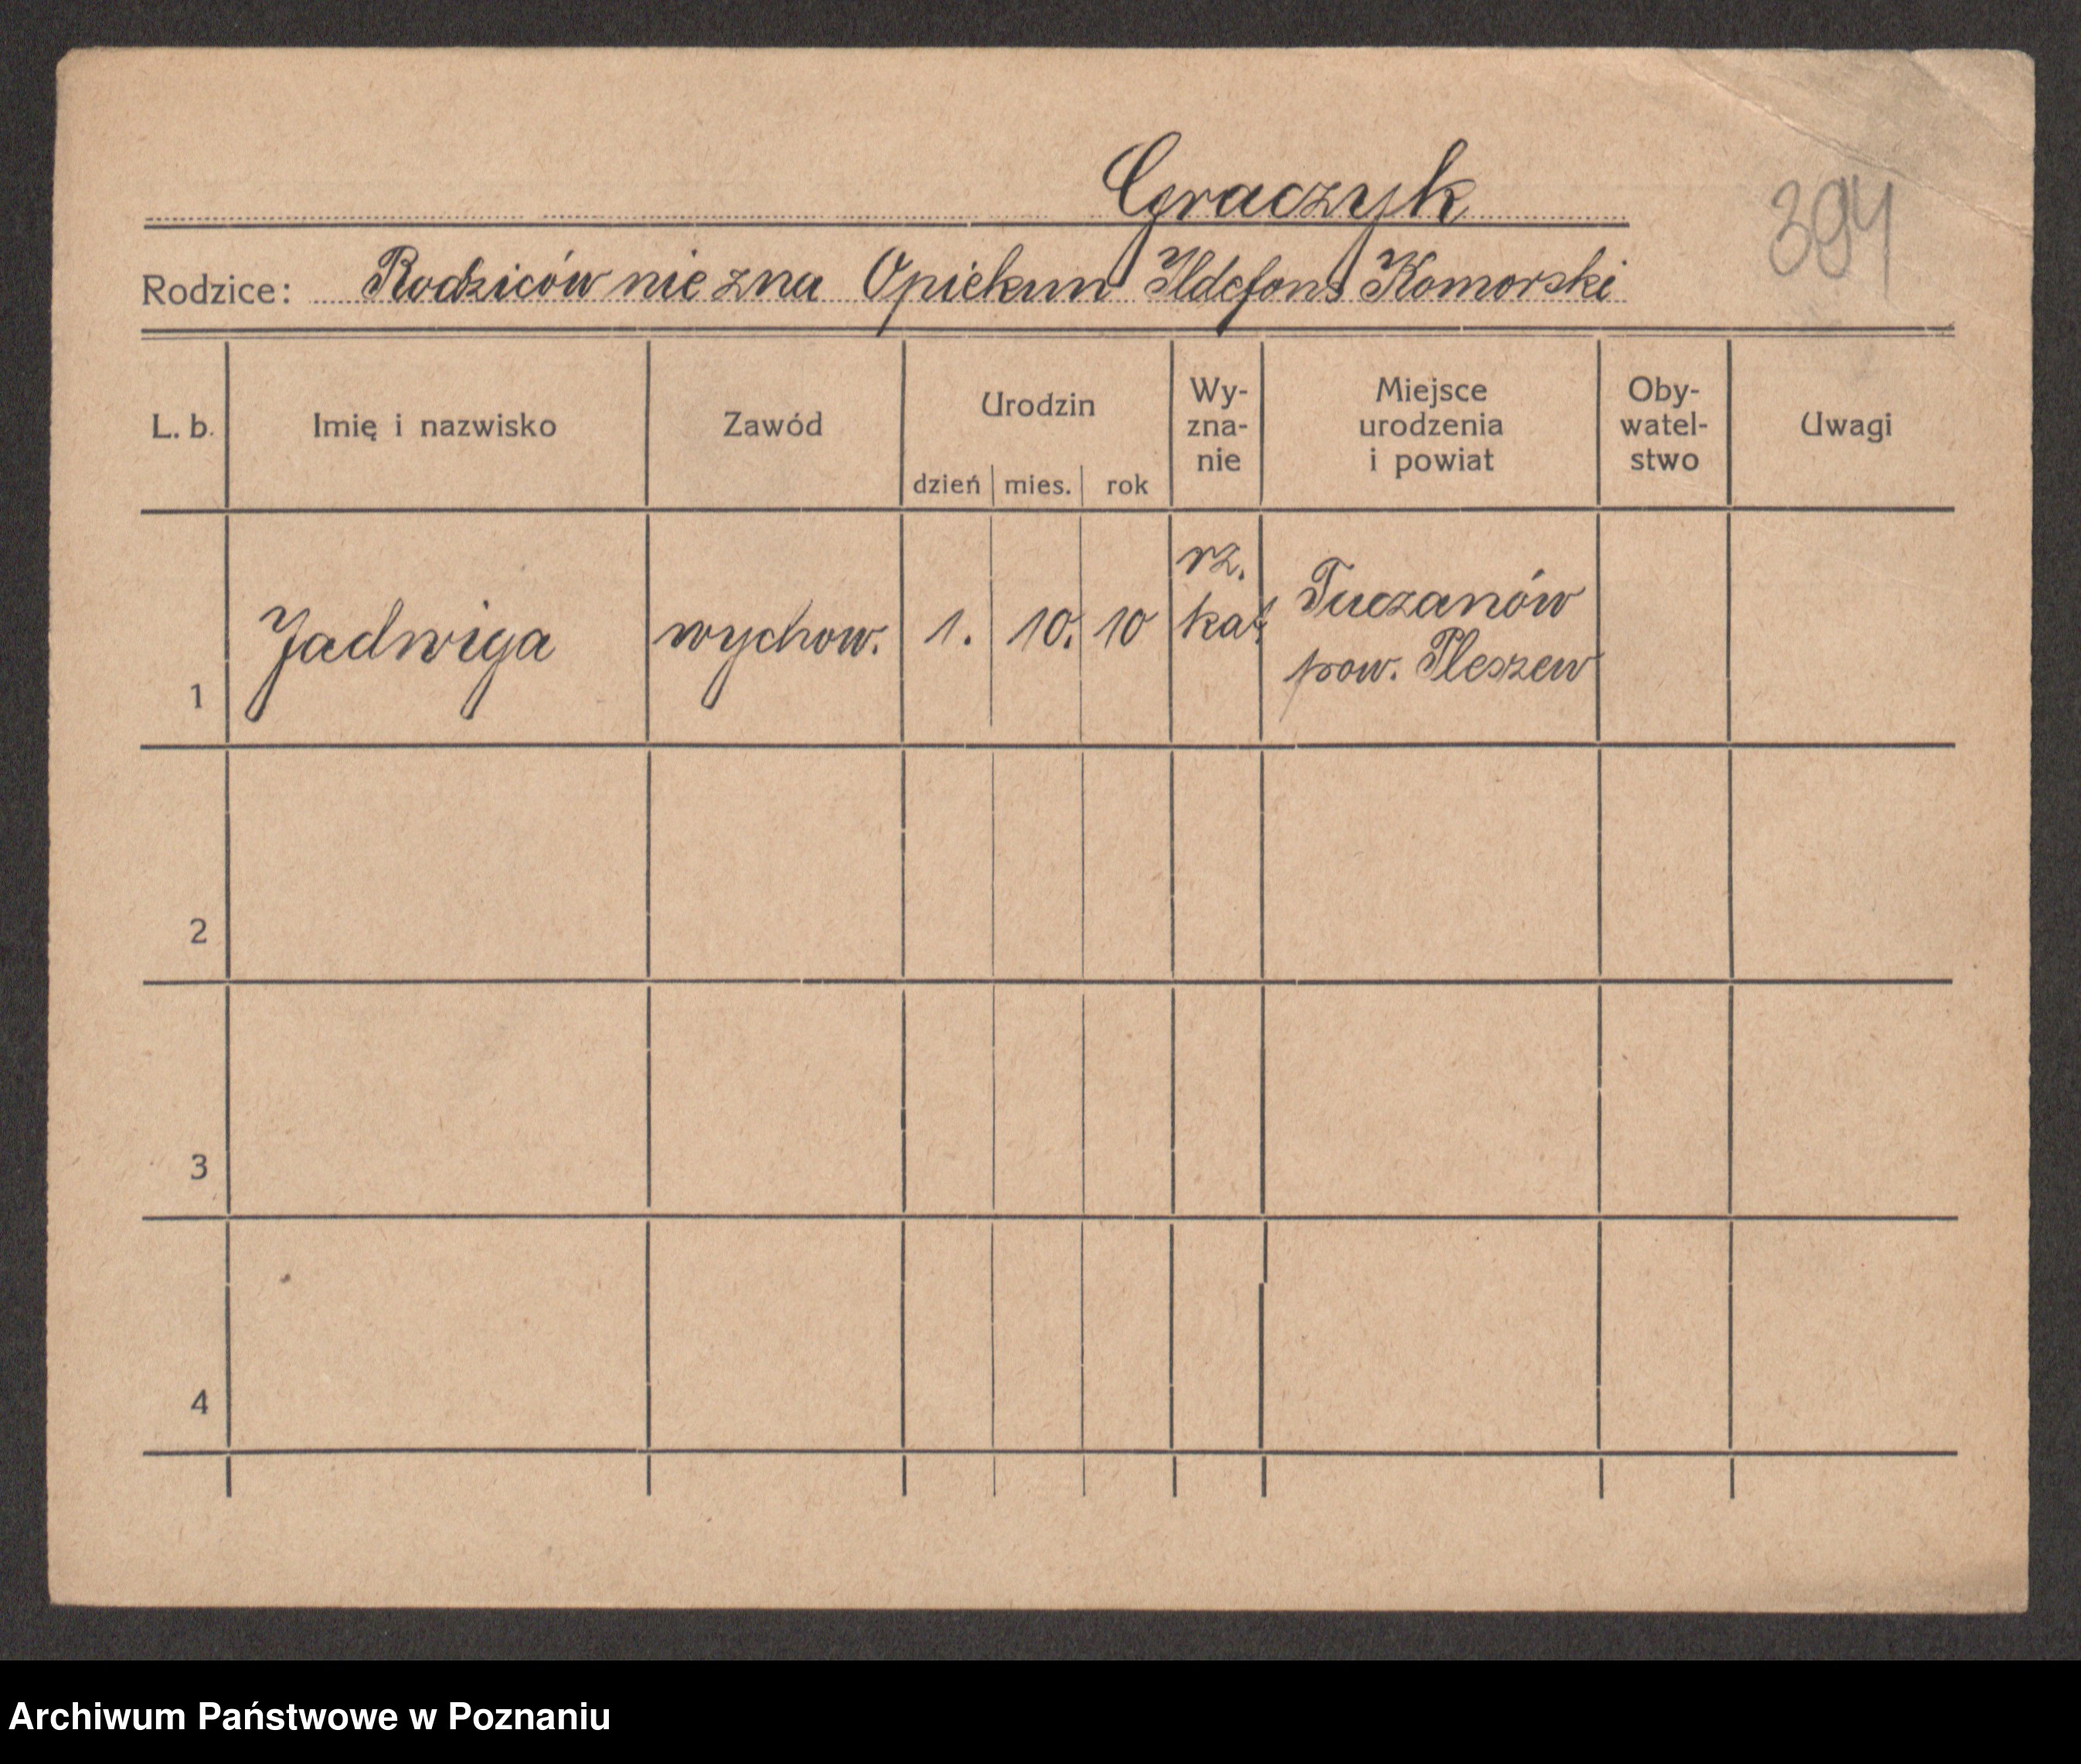 Graczyk
394
Rodzice: Rodziców nie zna Opiekun Ildefons Komorski
L. b. Imię i nazwisko Zawód Urodzin dzień mies. rok Wy-zna-nie Miejsce urodzenia i powiat Oby-watel-stwo Uwagi
1 Jadwiga wychow. 1. 10. 10 rz. kat. Tuczanów pow. Pleszew
2
3
4
Archiwum Państwowe w Poznaniu